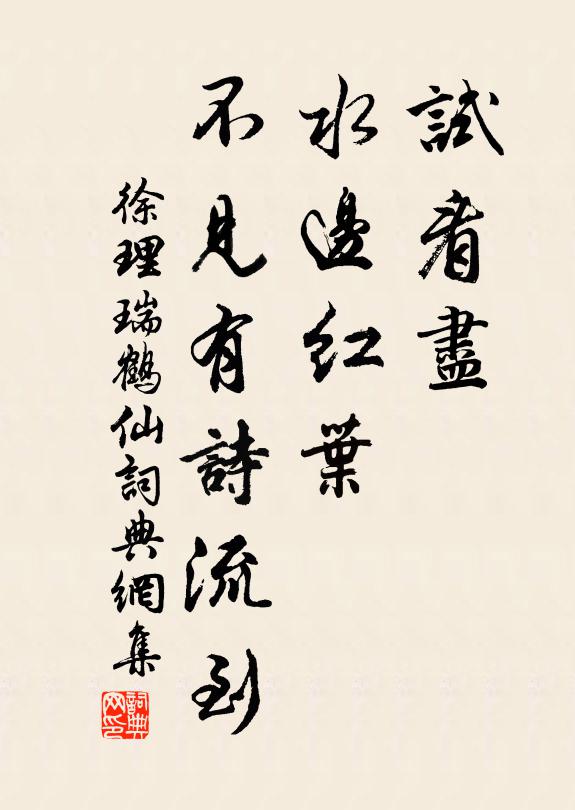 試看盡
水邊紅葉
不見有詩流到
徐理瑞鶴仙詞典網集
詞典
網印